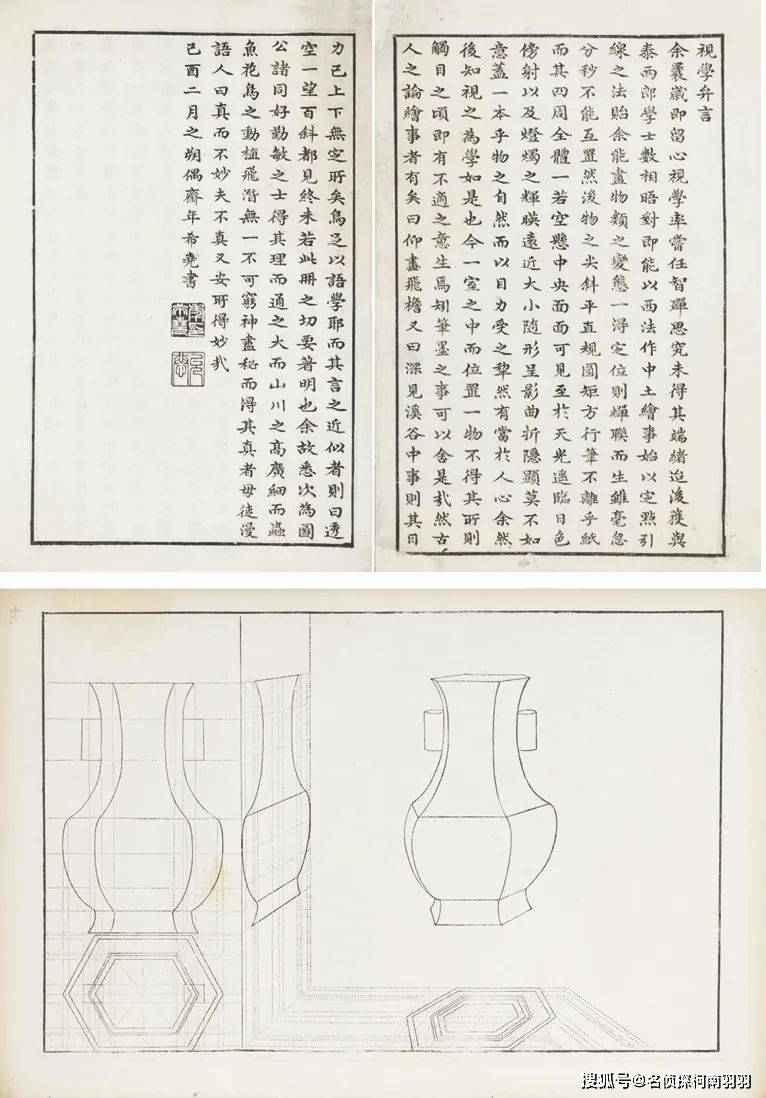 視學弁言
余曩歲即留心視學率嘗任智殫思究未得其端緒迨後獲與
泰西郎學士數相晤對即能以西法作中土繪事始以定點引
線之法貽余能盡物類之變態一得定位則蟬聯而生雖毫忽
分秒不能互置然後物之尖斜平直規圓矩方行筆不離乎紙
而其四周全體一若空懸中央面面可見至於天光遙臨日色
傍射以及燈燭之輝映遠近大小隨形呈影曲折隱顯莫不如
意蓋一本乎物之自然而以目力受之犂然有當於人心余然
後知視之為學如是也今一室之中而位置一物不得其所則
觸目之頃即有不適之意生焉矧筆墨之事可以舍是哉然古
人之論繪事者有矣曰仰畫飛檐又曰深見溪谷中事則其目
力已上下無定所矣烏足以語學耶而其言之近似者則曰透
空一望百斜都見終未若此冊之切要著明也余故悉次為圖
公諸同好勤敏之士得其理而通之大而山川之高廣細而蟲
魚花鳥之動植飛潛無一不可窮神盡秘而得其真者毋徒漫
語人曰真而不妙夫不真又安所得妙哉
己酉二月之朔偶齋年希堯書
搜狐号@名侦探柯南羽羽